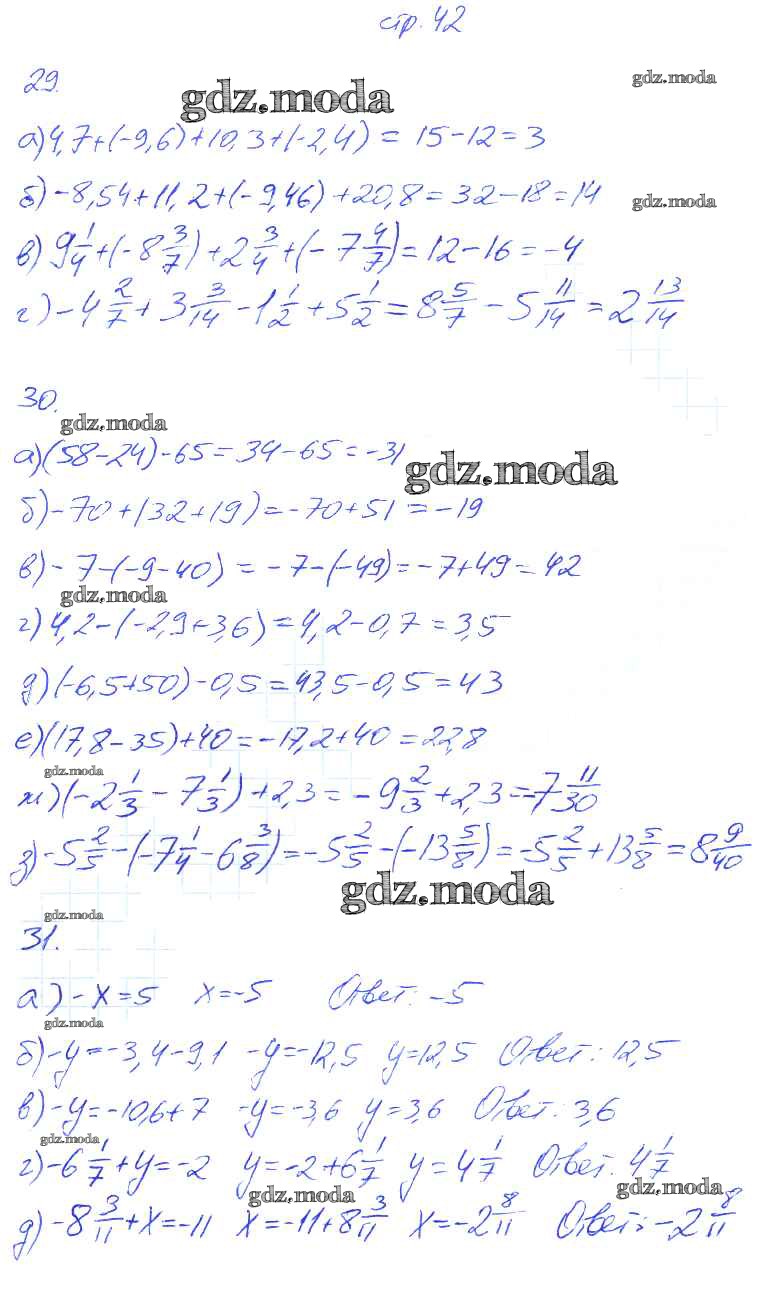 стр. 42
29.
gdz.moda
gdz.moda
а) 4,7+(-9,6)+10,3+(-2,4) = 15-12=3
б) -8,54+11,2+(-9,46)+20,8=32-18=14
gdz.moda
в) 9 1/4+(-8 3/7)+2 3/4+(-7 4/7)=12-16=-4
г) -4 2/7+3 3/14-1 1/2+5 1/2=8 5/7-5 11/14=2 13/14
30.
gdz.moda
а) (58-24)-65=34-65=-31
gdz.moda
б) -70+(32+19)=-70+51=-19
в) -7-(-9-40) = -7-(-49)=-7+49=42
gdz.moda
г) 4,2-(-2,9+3,6)=4,2-0,7=3,5
д) (-6,5+50)-0,5=43,5-0,5=43
е) (17,8-35)+40=-17,2+40=22,8
gdz.moda
ж) (-2 1/3-7 1/3)+2,3=-9 2/3+2,3=-7 11/30
з) -5 2/5-(-7 1/4-6 3/8)=-5 2/5-(-13 5/8)=-5 2/5+13 5/8=8 9/40
gdz.moda
gdz.moda
31.
а) -x=5 x=-5 Ответ: -5
gdz.moda
б) -y=-3,4-9,1 -y=-12,5 y=12,5 Ответ: 12,5
в) -y=-10,6+7 -y=-3,6 y=3,6 Ответ: 3,6
gdz.moda
г) -6 1/7+y=-2 y=-2+6 1/7 y=4 1/7 Ответ: 4 1/7
gdz.moda
gdz.moda
д) -8 3/11+x=-11 x=-11+8 3/11 x=-2 8/11 Ответ: -2 8/11